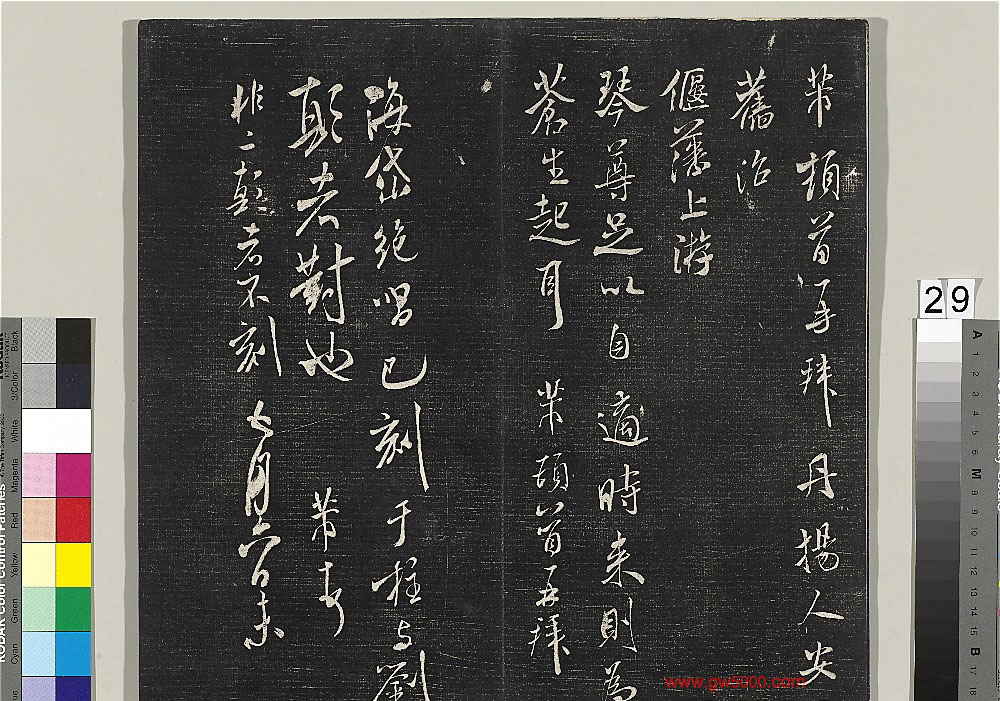 芾頓首再拜丹揚人安
舊治
偃藩上游
琴尊足以自適時来則為
蒼生起耳 芾頓首再拜
海岱絶唱已刻于柱与劉
顛老對也 芾
非二顛老不刻 七月
29
www.gw5000.com
KODAK Color Control Patches
Black
3/Color
White
Magenta
Red
Yellow
Green
Cyan
A 1 2 3 4 5 6 M 8 9 10 11 12 13 14 15 B 17 18